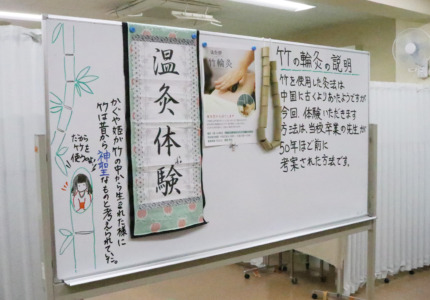 竹の輪灸の説明
竹を使用した灸法は
中国に古くよりあったようですが
今回、体験いただきます
方法は、当校卒業の先生が
50年ほど前に
考案された方法です。
竹輪灸
温灸体験
かぐや姫が竹の中から生まれた様に
竹は昔から神聖なものと考えられて
だから
竹を
使うのよ